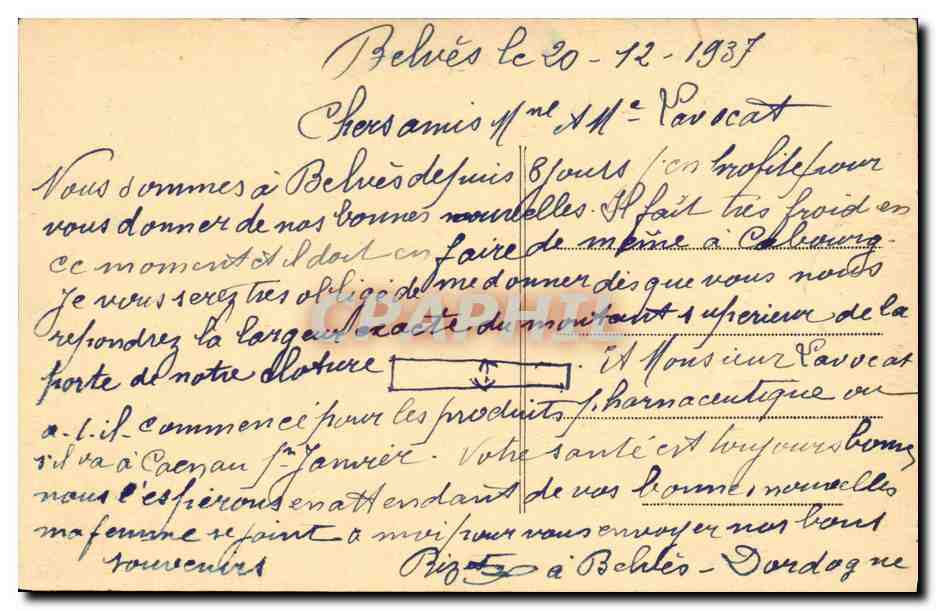 Belvès le 20 - 12 - 1937
Chers amis Mme & Mr Lavocat
Nous sommes à Belvès depuis 8 jours j'en profite pour
vous donner de nos bonnes nouvelles. Il fait très froid en
ce moment et il doit en faire de même à Cabourg.
Je vous serez très obligé de me donner dès que vous nous
repondrez la largeur exacte du montant superieur de la
porte de notre cloture . Et Monsieur Lavocat
a-t-il commencé pour les produits pharmaceutique ou
s'il va à Caen au 1er Janvier. Votre santé est toujours bonne,
nous l'espérons en attendant de vos bonnes nouvelles
ma femme se joint a moi pour vous envoyer nos bons
souvenirs à Belvès - Dordogne
CPAPHIL